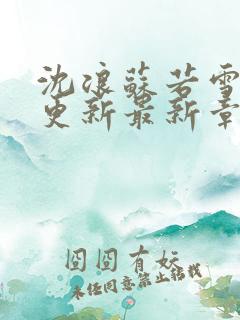 沈浪蘇若雪
更新最新章
囧囧有妖
未经同意禁止转载